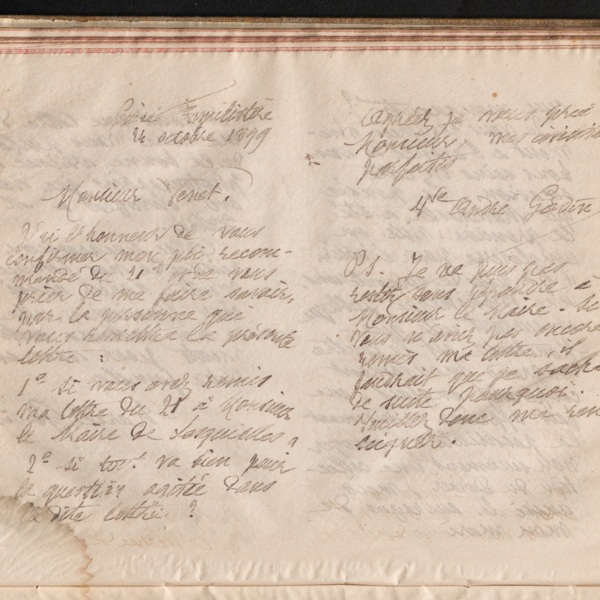 Guise Familistère
24 octobre 1899
Monsieur
J'ai l'honneur de vous
confirmer mon pli recom-
mandé du 21 et de vous
prier de me faire savoir,
par la personne que
vous remettra la présente
lettre :
1º si vous avez remis
ma lettre du 21 à Monsieur
le Maire de Lesquielles,
2º si tout va bien pour
la question agitée dans
la dite lettre ?
Agréez je vous prie
Monsieur mes civilités
parfaites
Vve André Godin
P.S. Je ne puis pas
rester sans réponse à
Monsieur le Maire. Si
vous ne avez pas encore
remis ma lettre, il
faudrait que je sache
de suite pourquoi.
Veuillez donc me ren
seigner.